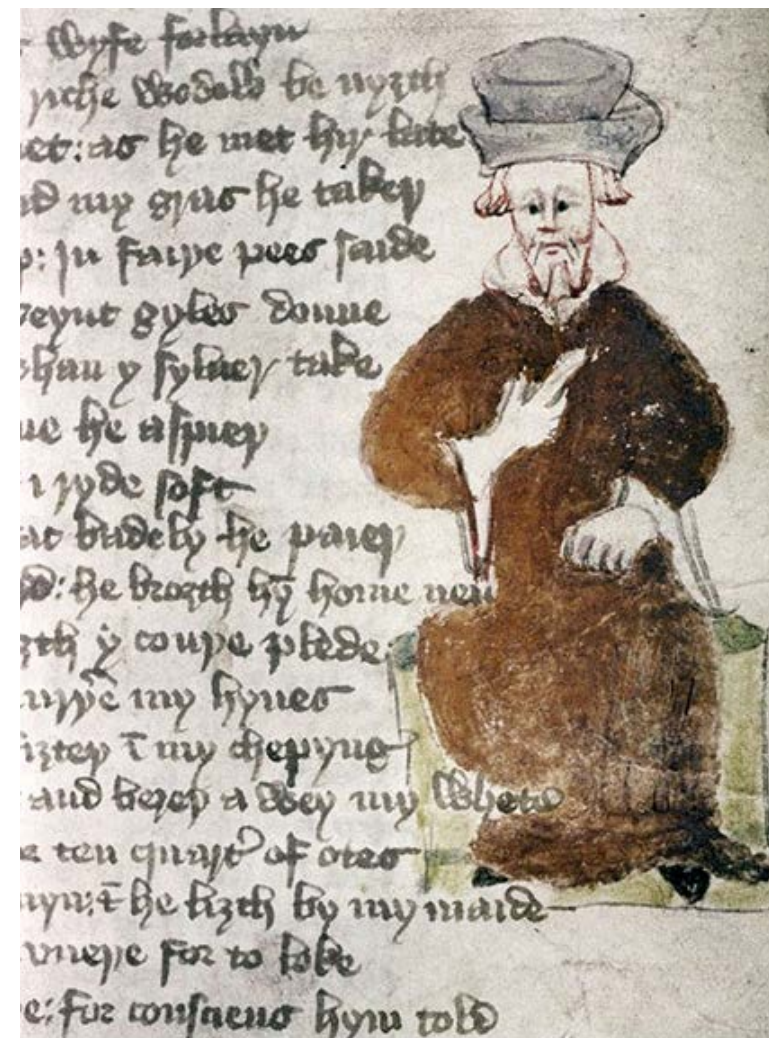 wyfe forlayn
ryche wedow be nyȝth
et: as he met hyr late
nd my gras he takeþ
: in fayþe pees saide
seynt gyles doune
whan y syluer take
ne he aspieþ
i ryde soft
at badely he paieþ
he broȝth hȳ home neu
ȝth y̍ coupe plede
my hynes
fiȝteþ ī my chepyng
and bereþ a wey my whete
ten quart' of otes
he liȝth by my maide
vneþe for to loke
e: for consciens hym told